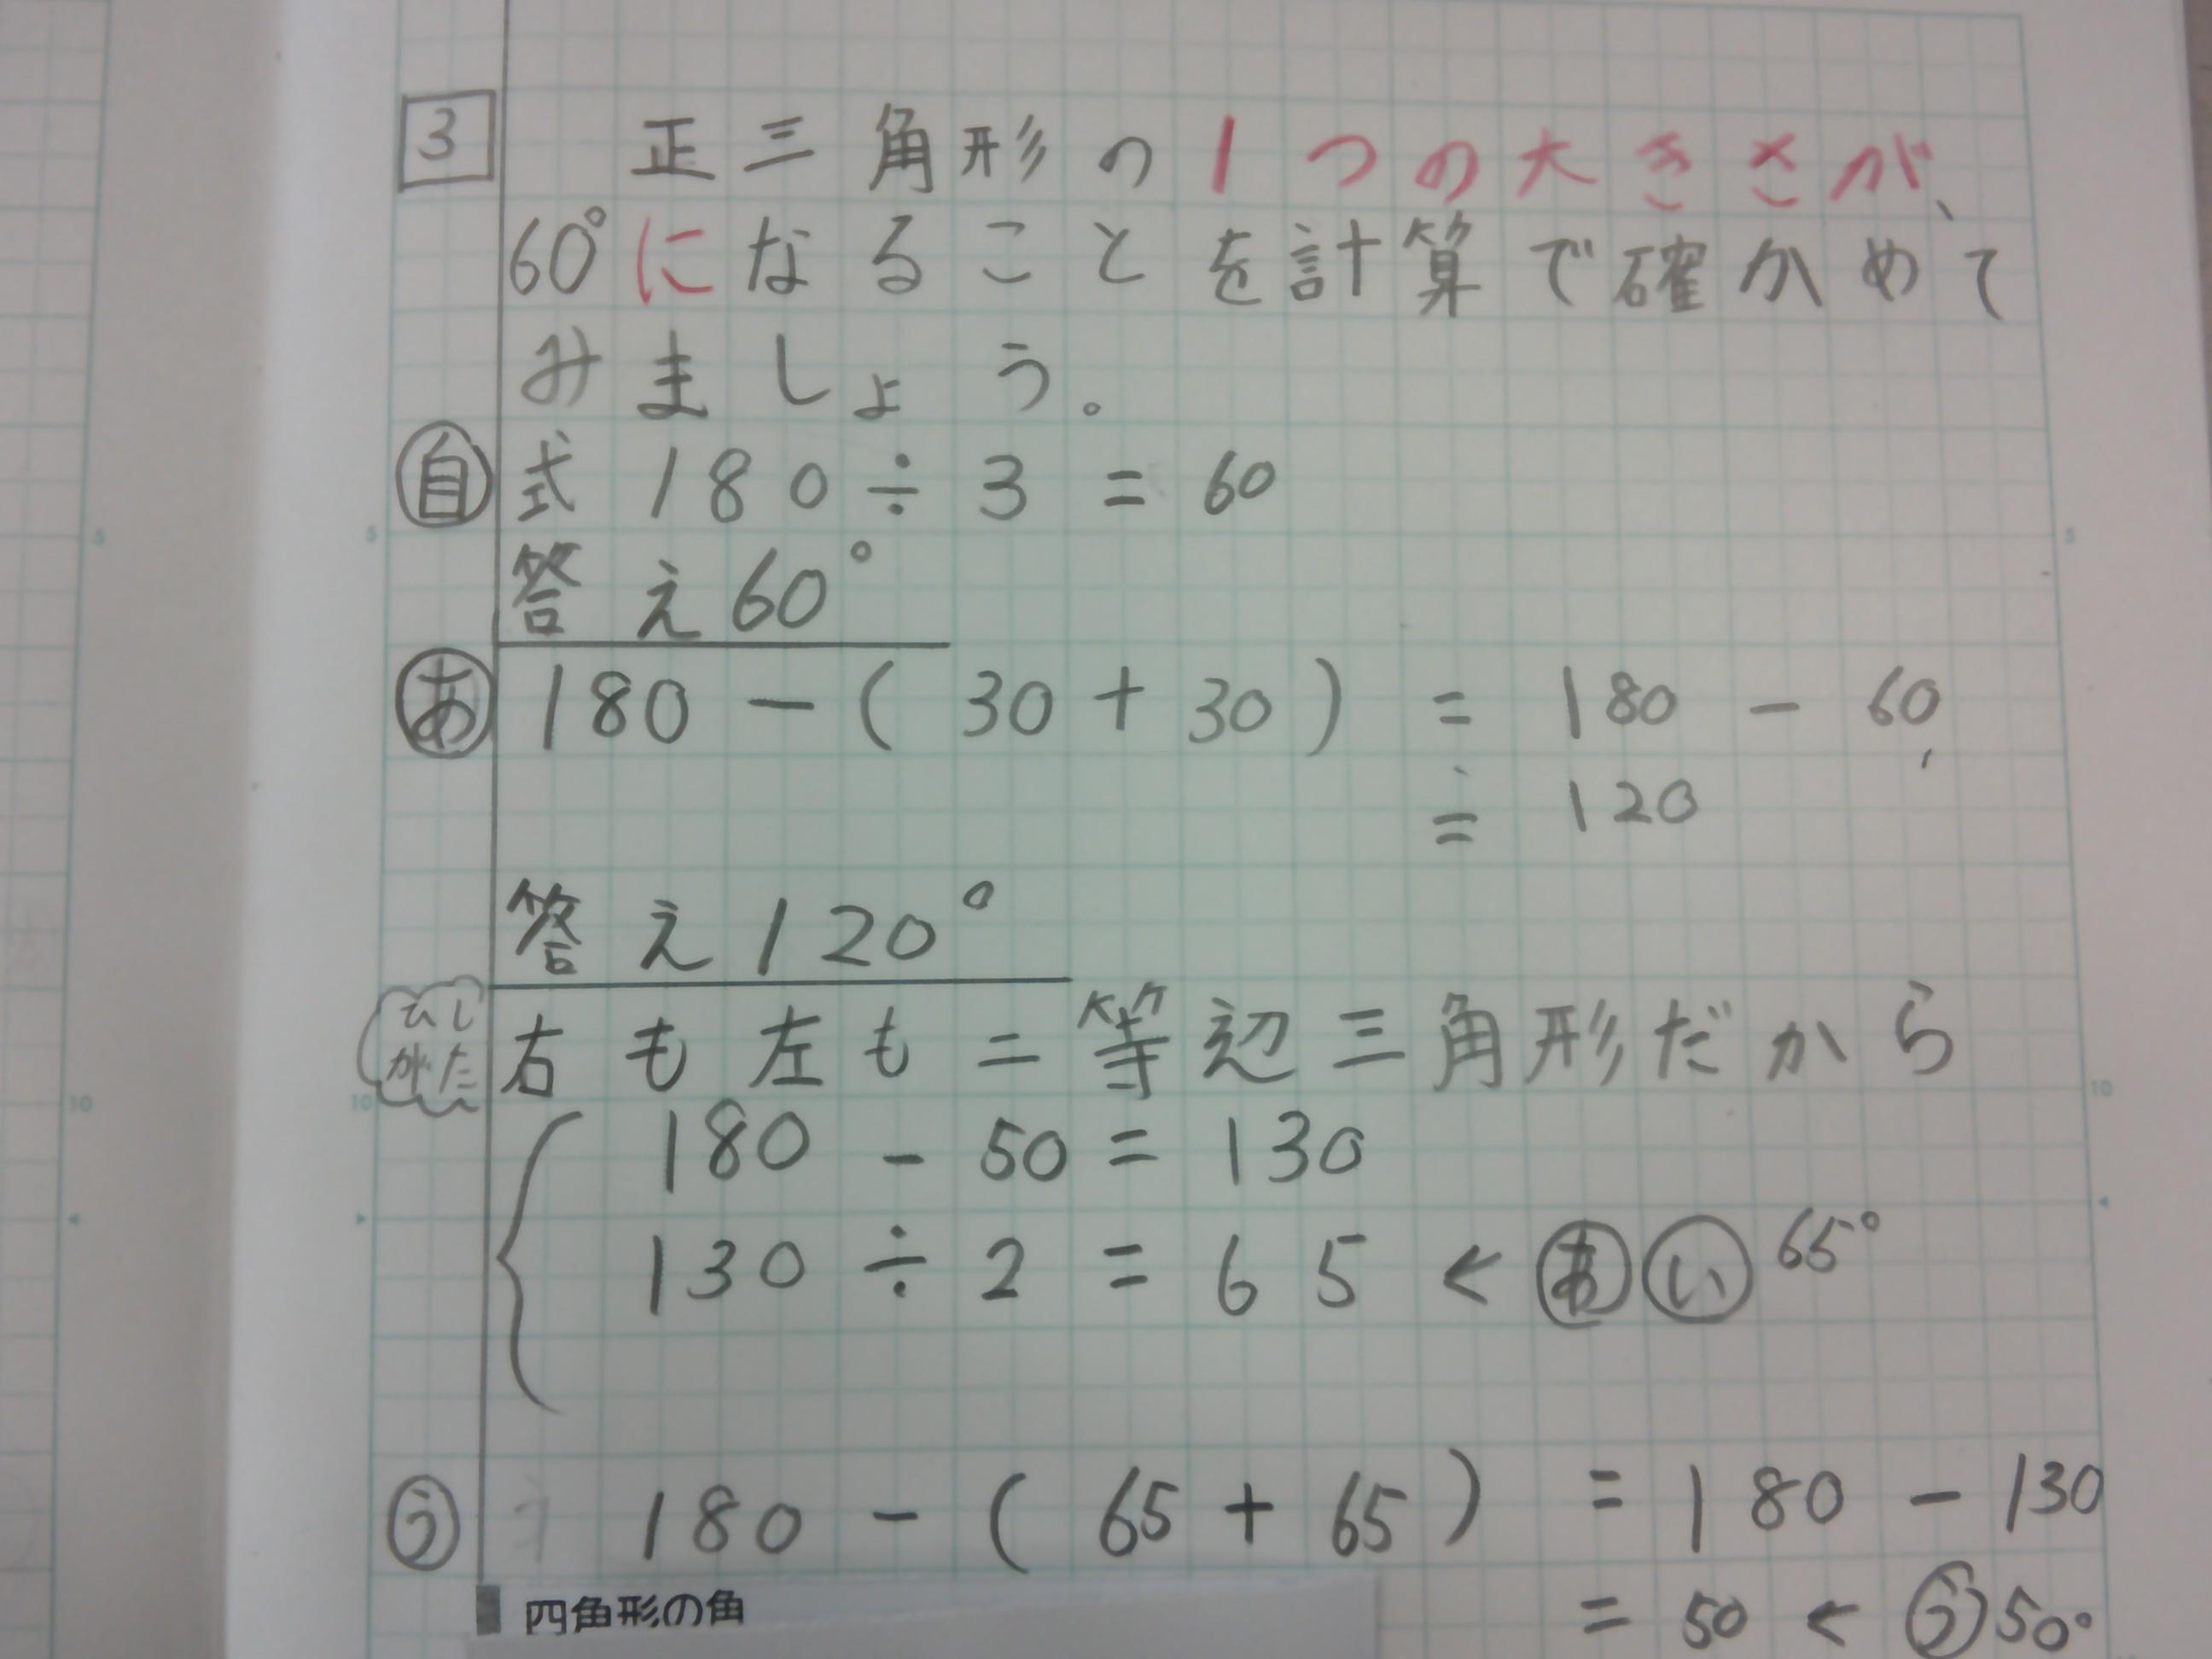 3 正三角形の1つの大きさが、
60°になることを計算で確かめて
みましょう。
自 式 180÷3=60
答え60°
あ 180-(30+30)=180-60
=120
答え120°
ひしがた 右も左も二等辺三角形だから
180-50=130
130÷2=65←あい65°
う 180-(65+65)=180-130
=50←う50°
四角形の角
5
10
5
10
5
10